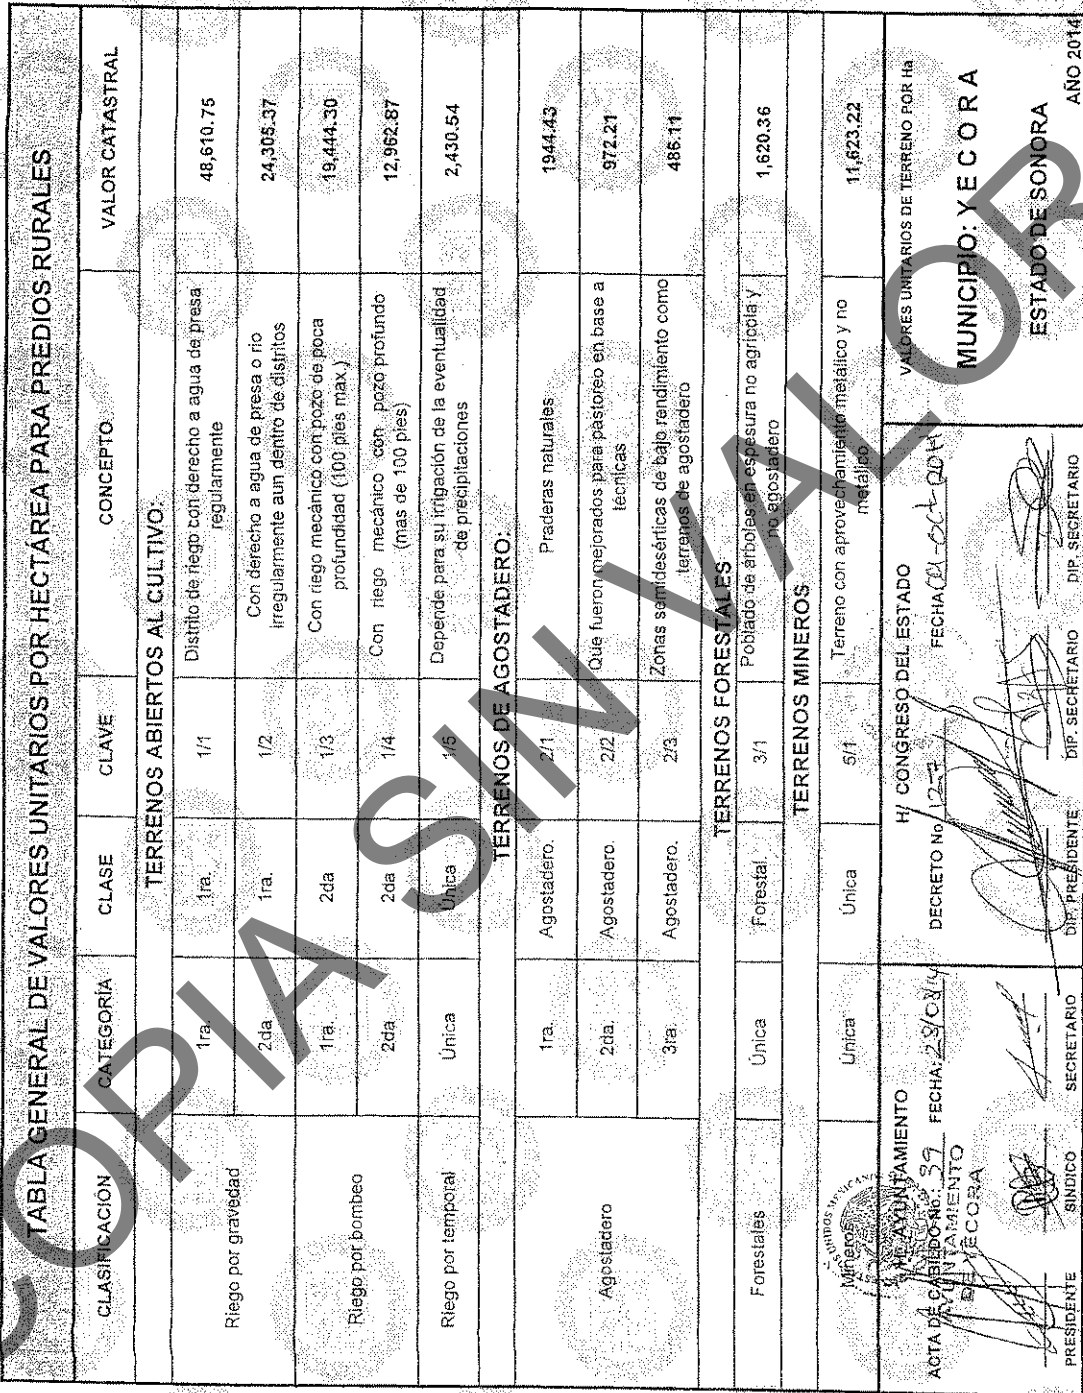 TABLA GENERAL DE VALORES UNITARIOS POR HECTÁREA PARA PREDIOS RURALES
CLASIFICACIÓN CATEGORÍA CLASE CLAVE CONCEPTO VALOR CATASTRAL
TERRENOS ABIERTOS AL CULTIVO:
Riego por gravedad
1ra. 1ra. 1/1 Distrito de riego con derecho a agua de presa 48,610.75
regularmente
2da 1ra. 1/2 Con derecho a agua de presa o rio 24,305.37
irregularmente aun dentro de distritos
Riego por bombeo
1ra. 2da 1/3 Con riego mecánico con pozo de poca 19,444.30
profundidad (100 pies max.)
2da 2da 1/4 Con riego mecánico con pozo profundo 12,962.87
(mas de 100 pies)
Riego por temporal Única Única 1/5 Depende para su irrigación de la eventualidad 2,430.54
de precipitaciones
TERRENOS DE AGOSTADERO:
Agostadero
1ra. Agostadero. 2/1 Praderas naturales 1944.43
2da. Agostadero. 2/2 Que fueron mejorados para pastoreo en base a 972.21
técnicas
3ra. Agostadero. 2/3 Zonas semidesérticas de bajo rendimiento como 486.11
terrenos de agostadero
TERRENOS FORESTALES
Forestales Única Forestal 3/1 Poblado de árboles en espesura no agrícola y 1,620.36
no agostadero
TERRENOS MINEROS
Mineros Única Única 5/1 Terreno con aprovechamiento metálico y no 11,623.22
metálico
H. AYUNTAMIENTO
ACTA DE CABILDO No. 39 FECHA: 28/08/14
AYUNTAMIENTO
DE YECORA
PRESIDENTE SINDICO SECRETARIO
H/ CONGRESO DEL ESTADO
DECRETO No. 127 FECHA
DIP. PRESIDENTE DIP. SECRETARIO DIP. SECRETARIO
VALORES UNITARIOS DE TERRENO POR Ha
MUNICIPIO: Y E C O R A
ESTADO DE SONORA
AÑO 2014
COPIA SIN VALOR